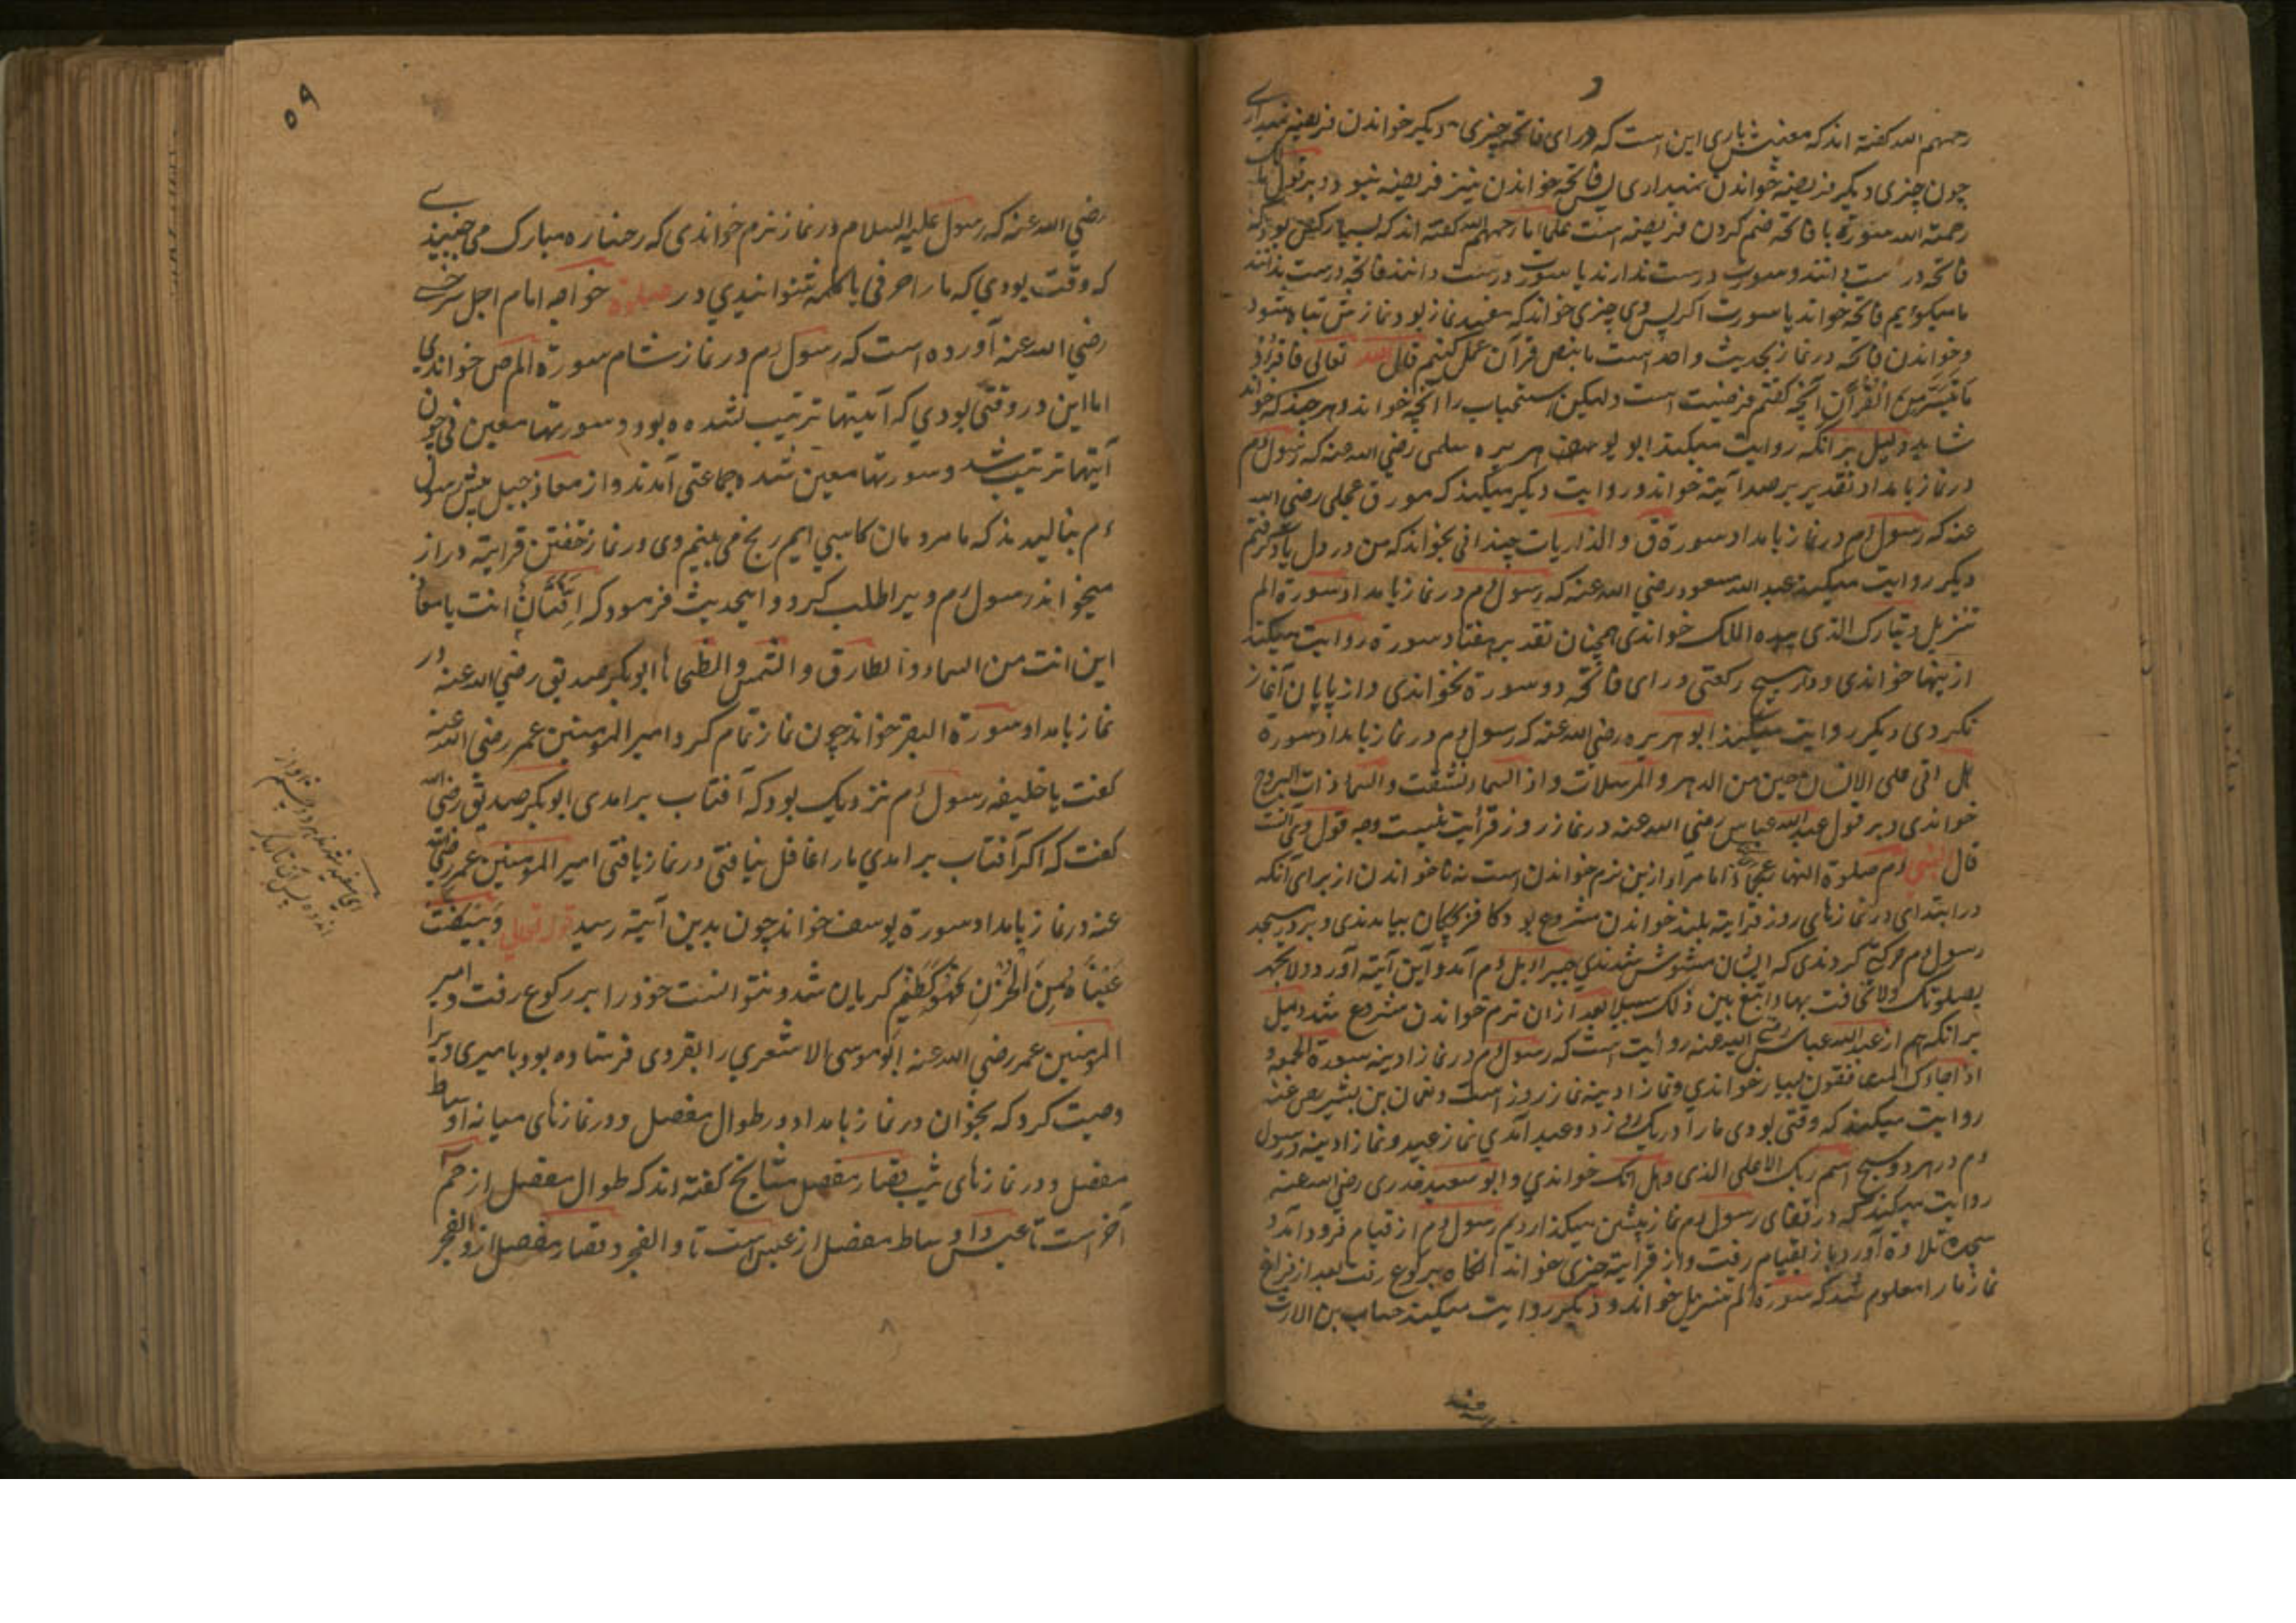 رحمهم الله کفته اند که معنیش باری این است که ورای فاتحه چیزی دیکر خواندن فریضه نمیداری
چون چیزی دیکر فریضه خواندن نمیداری پس فاتحه خواندن نیز فریضه نبود و بر قول مالک
رحمة الله سورة با فاتحه ضم کردن فریضه است علما ما رحمهم الله کفته اند که بسیار کس بود که
فاتحه درست دانند و سورت درست ندارند یا سورت درست دانند فاتحه درست ندانند
ما میکوایم فاتحه خواند یا سورت اکر پس وی چیزی خواند که مفسد نماز بود نمازش تباه شود
و خواندن فاتحه در نماز بحدیث واحد است ما بنص قرآن عمل کنیم قال الله تعالی فاقرؤا
ما تیسر من القرآن آنچه کفتم فرضیت است ولیکن استحباب را آنچه خواند و هر چند که خواند
شاید دلیل برانکه روایت میکند ابو هریره سلمی رضی الله عنه که رسول ءم
در نماز بامداد تقدیر بر صد آیة خواند و روایت دیکر میکند که مورق عجلی رضی الله
عنه که رسول ءم در نماز بامداد سورة ق و الذاریات چندانی بخواند که من در دل یاد کرفتم
دیکر روایت میکند عبد الله مسعود رضی الله عنه که رسول ءم در نماز بامداد سورة الم
تنزیل و تبارک الذی بیده الملک خواندی همچنان تقدیر هفتاد سورة روایت میکند
ازینها خواندی و در هیچ رکعتی ورای فاتحه دو سورة نخواندی و از پایان آغاز
نکردی دیکر روایت میکند ابو هریره رضی الله عنه که رسول ءم در نماز بامداد سورة
هل اتی علی الانسان حین من الدهر و المرسلات و اذا السماء انشقت و السماء ذات البروج
خواندی و بر قول عبد الله عباس رضی الله عنه در نماز روز قرأیت نیست وجه قول وی آنست
قال النبی ءم صلوة النهار عجماء اما مراد ازین نرم خواندن است نه ناخواندن از برای آنکه
در ابتدای در نمازهای روز قرایة بلند خواندن مشروع بود کافرکان بیامدندی و بر در مسجد
رسول ءم حرکتی کردندی که ایشان مشوش شدندی جبرائیل ءم آمد و این آیة آورد ولا تجهر
بصلوتک ولا تخافت بها وابتغ بین ذلک سبیلا بعد ازان نرم خواندن مشروع شد دلیل
برانکه هم از عبد الله عباس رضی الله عنه روایت است که رسول ءم در نماز ادینه سورة الجمعه و
اذا جاءک المنافقون بسیار خواندی و نماز ادینه نماز روز است و نعمان بن بشیر رض عنه
روایت میکند که وقتی بودی ما را در یک روز دو عید آمدی نماز عید و نماز ادینه و رسول
ءم در هر دو سبح اسم ربک الاعلی الذی و هل اتک خواندی و ابو سعید خدری رضی الله عنه
روایت میکند که در قفای رسول ءم نماز پیشین میکذاردیم رسول ءم از قیام فرود آمد و
سجدۀ تلاوة آورد باز بقیام رفت و از قرایة چیزی خواند آنکاه برکوع رفت بعد از فراغ
نماز ما را معلوم شد که سورة الم تنزیل خواند و دیکر روایت میکند خباب بن الارت
رضی الله عنه
۵۹
رضی الله عنه که رسول علیه السلام در نماز نرم خواندی که رخساره مبارک می جنبیدی
که وقت بودی که ما را حرفی یا کلمه شنوانیدی در صلوة خواجه امام اجل سرخسی
رضی الله عنه آورده است که رسول ءم در نماز شام سورة المص خواندی
اما این در وقتی بودی که آیتها ترتیب نشده بود و سورتها معین نی چون
آیتها ترتیب شد و سورتها معین شده جماعتی آمدند و از معاذ جبل پیش رسول
ءم بنالیدند که ما مردمان کاسبی ایم رنج می بینیم وی در نماز خفتن قرایة دراز
میخواند رسول ءم ویرا طلب کرد و ایحدیث فرمود که افتان انت یا معاذ
این انت من السماء و الطارق و الشمس و الضحاها ابو بکر صدیق رضی الله عنه در
نماز بامداد سورة البقر خواند چون نماز تمام کرد امیر المومنین عمر رضی الله عنه
کفت یا خلیفه رسول ءم نزدیک بود که آفتاب برامدی ابو بکر صدیق رضی الله
کفت که اکر آفتاب برامدی ما را غافل نیافتی در نماز یافتی امیر المومنین عمر رضی الله
عنه در نماز بامداد سورة یوسف خواند چون بدین آیة رسید قوله تعالی وَابْیَضَّتْ
عَیْنَاهُ مِنَ الْحُزْنِ فَهُوَ کَظِیْم کریان شد و نتوانست خود را بر رکوع رفت و امیر
المومنین عمر رضی الله عنه ابو موسی الاشعری را بقروی فرستاده بود بامیری ویرا
وصیت کرد که بخوان در نماز بامداد و رطوال مفصل و در نمازهای میانه اوساط
مفصل و در نمازهای شب قصار مفصل مشایخ کفته اند که طوال مفصل از حم
آخر است تا عبس و اوساط مفصل از عبس است تا والفجر و قصار مفصل از والفجر